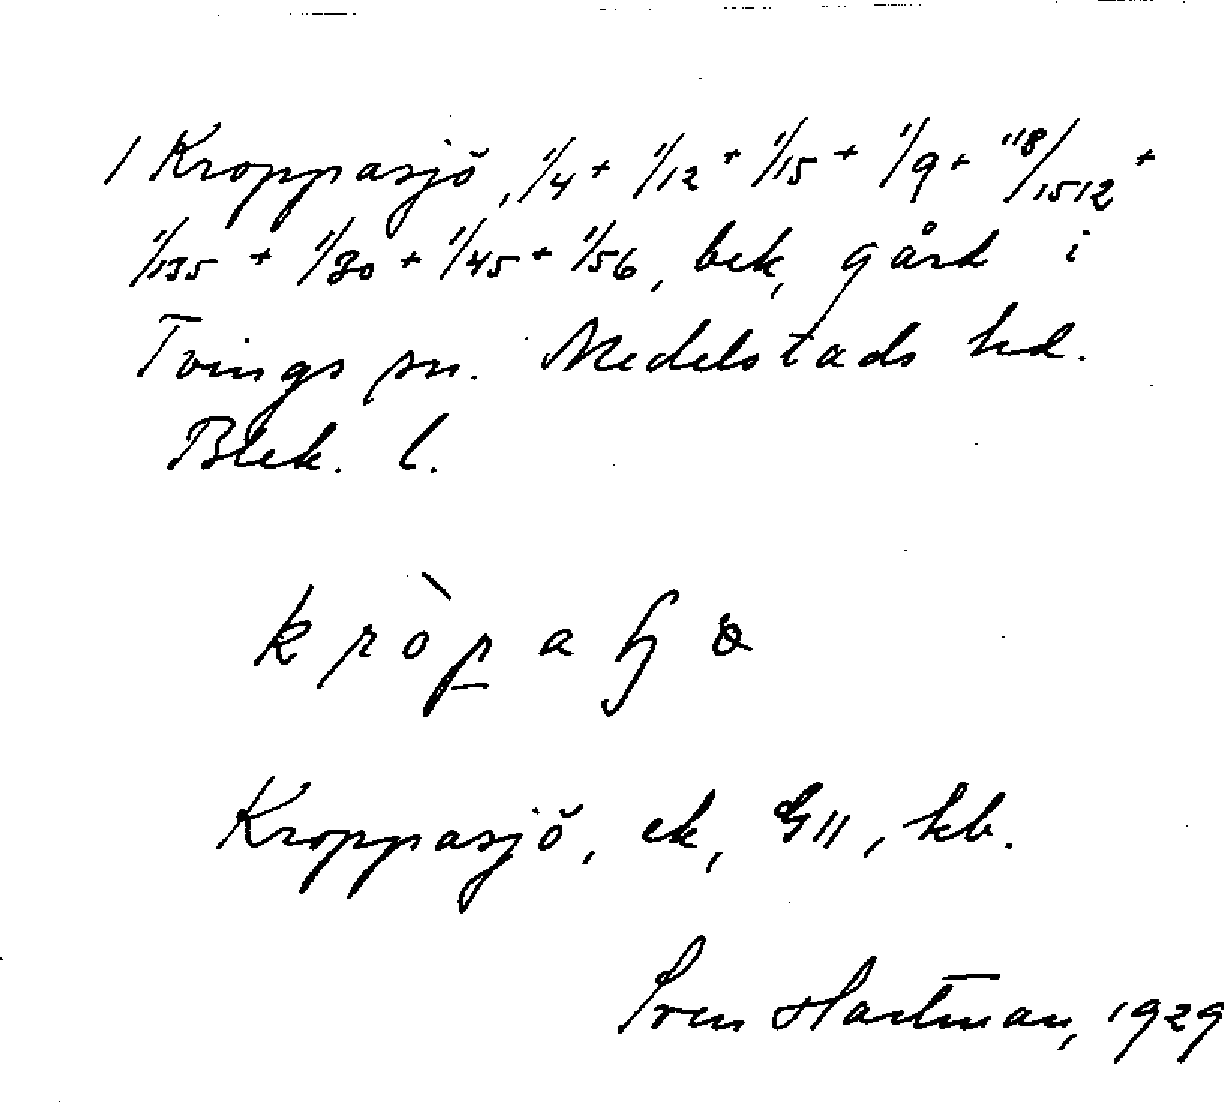 1 Kroppasjö, 1/4 + 1/12 + 1/15 + 1/9 + 118/1512 +
1/135 + 1/30 + 1/45 + 1/56, bek, gård i
Tvings sn. Medelstads hd.
Blek. l.
Kroppasjö, ek, GII, kb.
Sven Hartman, 1929